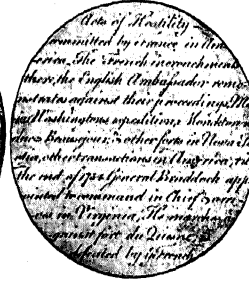 Acts of Hostility
committed by France in Ame
rica. The French incroachments
there, the English Ambassador remon
strates against their proceedings. Ma
jor Washingtons expedition,
Beausejour, & other forts in Nova Sco
tia, other transactions in America, to
the end of 1754. General Braddock app
ointed command in Chief
in Virginia, He marches
against fort du Quesne
defeated by French